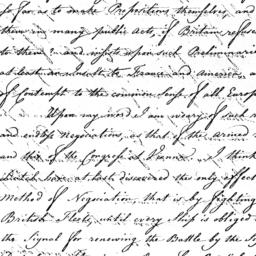 so far as to make Propositions themselves, and
them in many public Acts, if Britain refuses
to them & and insists upon such Preliminaries
at least an insult to France and America, and
of Contempt to the common Sense of all Europe
Upon my word I am weary of such r
and endless Negociations, as that of the armed n
and this of the Congress at Vienna. I think
British have at last discovered the only effect
Method of Negociation, that is by fighting
British Fleets, until every Ship is obliged
the Signal for renewing the Battle by the S